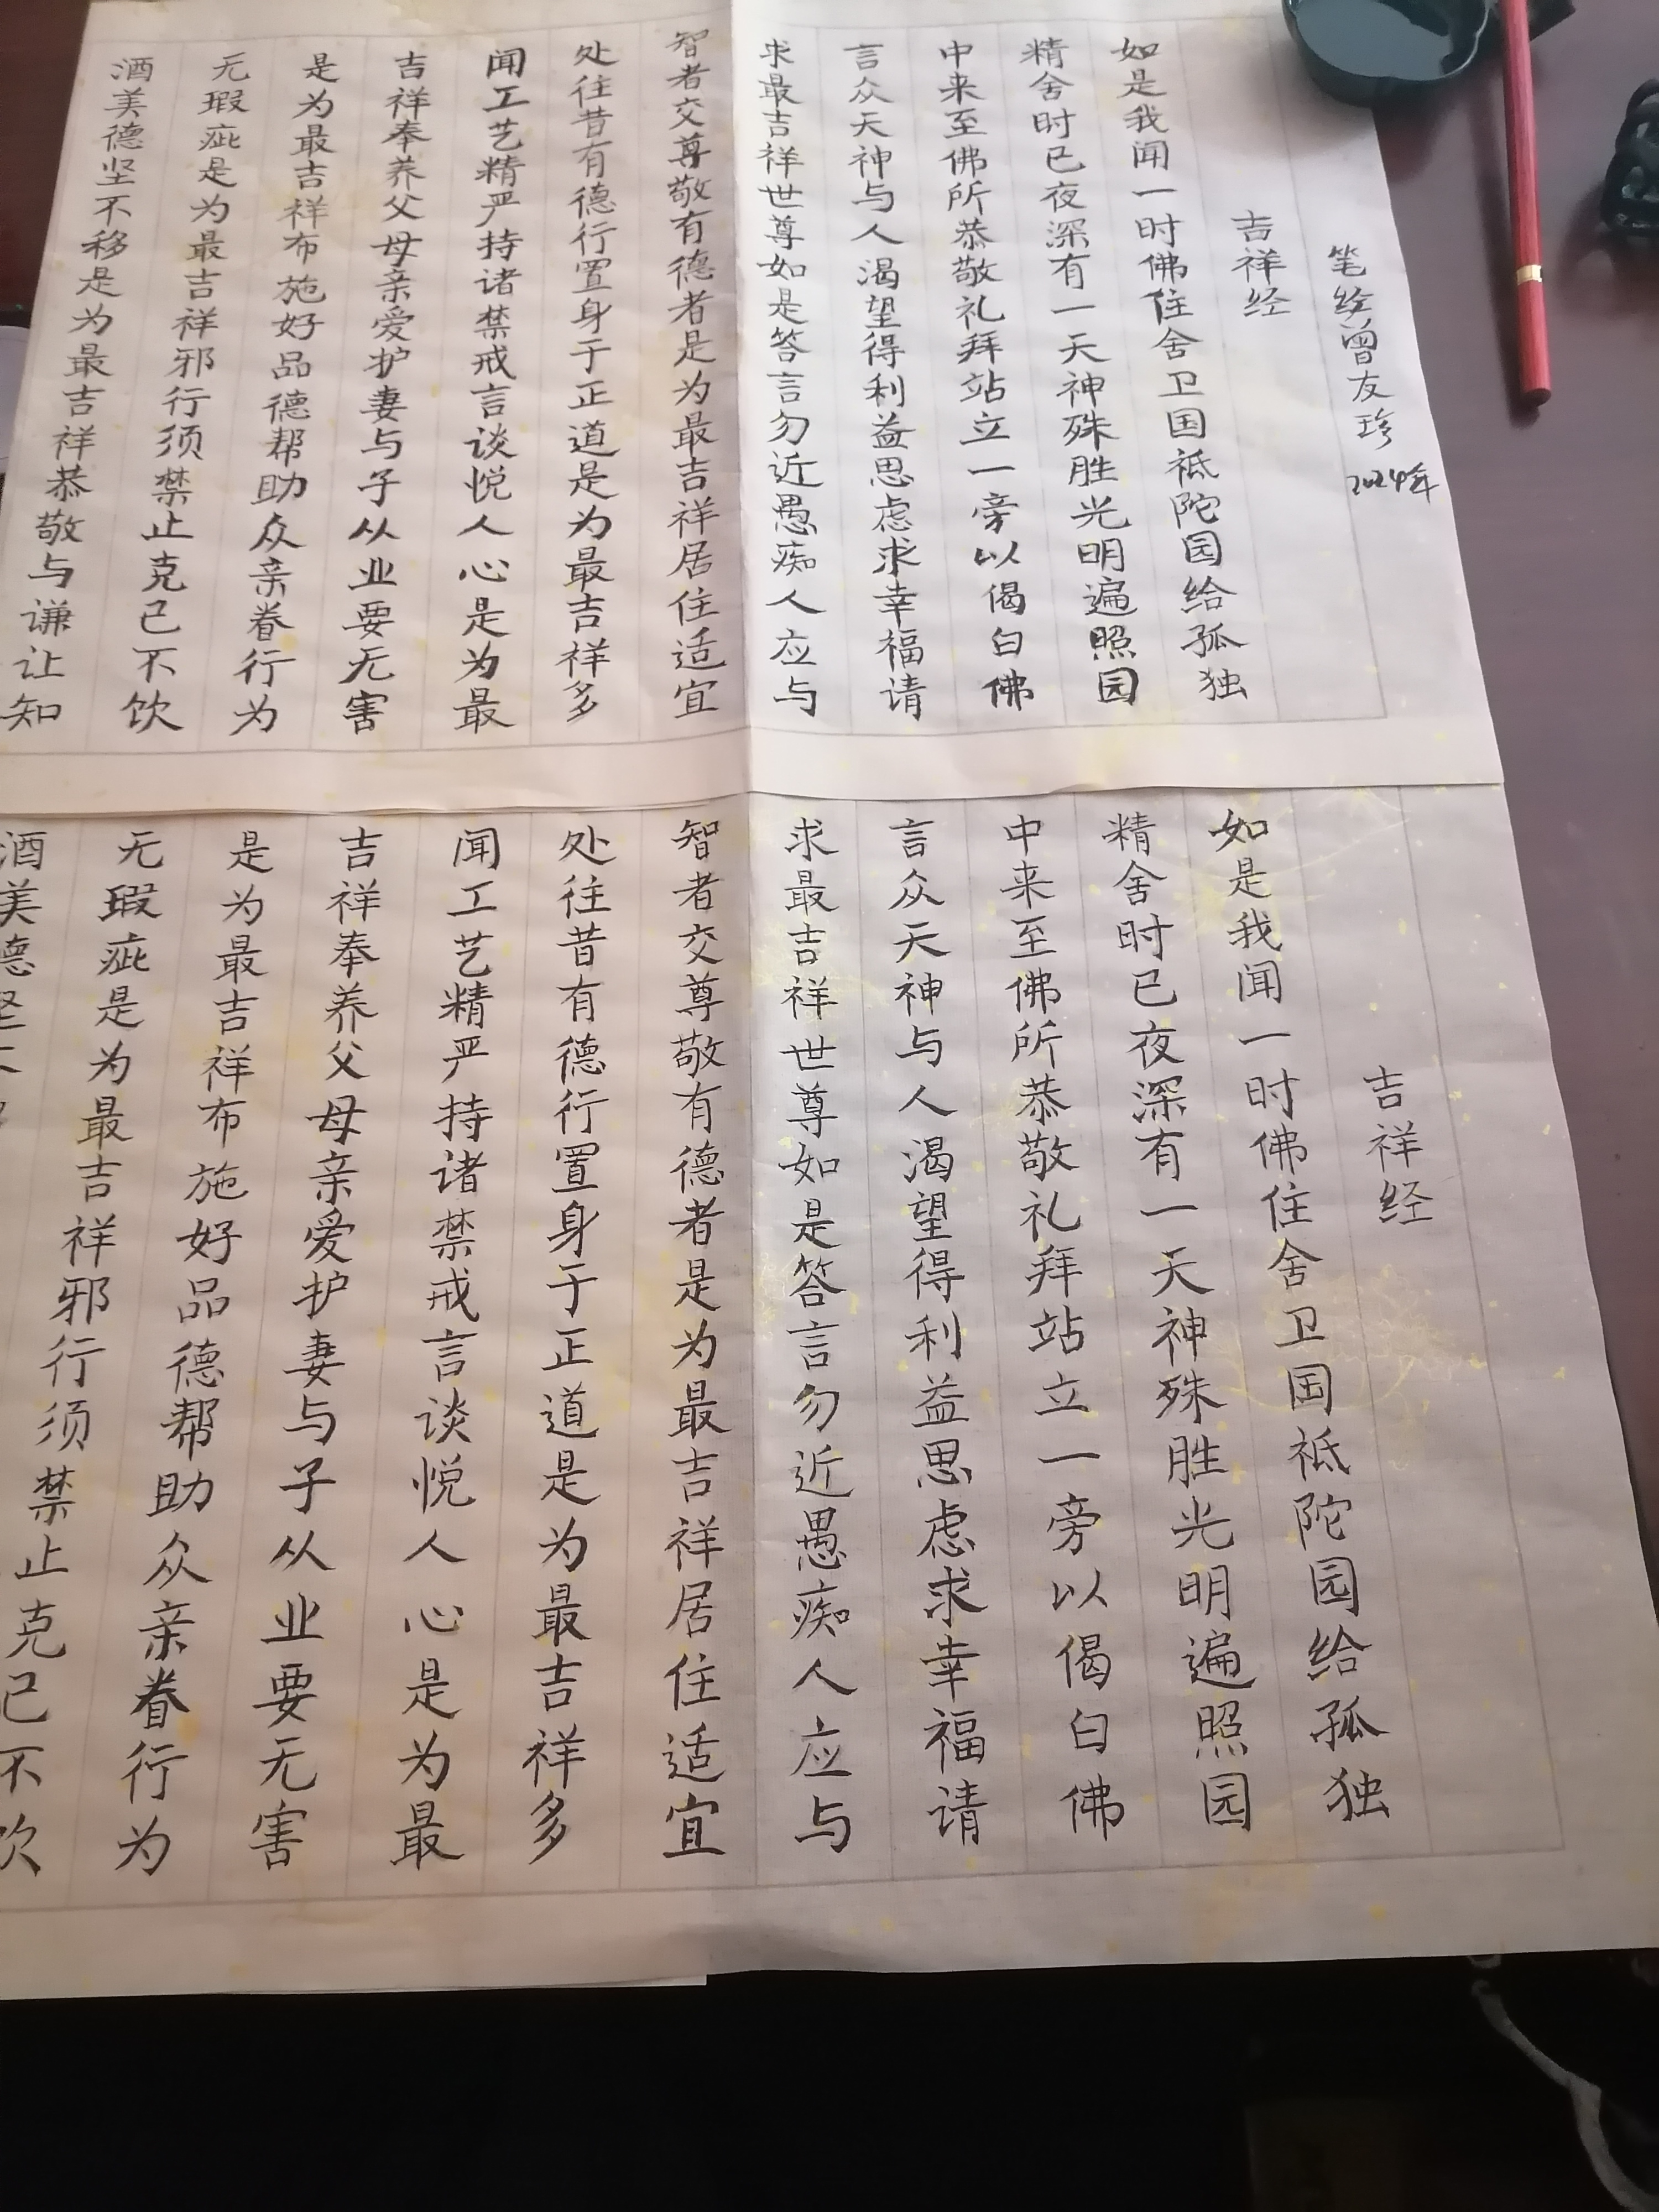 笔经曾友珍2024年
吉祥经
如是我闻一时佛住舍卫国祇陀园给孤独
精舍时已夜深有一天神殊胜光明遍照园
中来至佛所恭敬礼拜站立一旁以偈白佛
言众天神与人渴望得利益思虑求幸福请
求最吉祥世尊如是答言勿近愚痴人应与
智者交尊敬有德者是为最吉祥居住适宜
处往昔有德行置身于正道是为最吉祥多
闻工艺精严持诸禁戒言谈悦人心是为最
吉祥奉养父母亲爱护妻与子从业要无害
是为最吉祥布施好品德帮助众亲眷行为
无瑕疵是为最吉祥邪行须禁止克己不饮
酒美德坚不移是为最吉祥恭敬与谦让知
吉祥经
如是我闻一时佛住舍卫国祇陀园给孤独
精舍时已夜深有一天神殊胜光明遍照园
中来至佛所恭敬礼拜站立一旁以偈白佛
言众天神与人渴望得利益思虑求幸福请
求最吉祥世尊如是答言勿近愚痴人应与
智者交尊敬有德者是为最吉祥居住适宜
处往昔有德行置身于正道是为最吉祥多
闻工艺精严持诸禁戒言谈悦人心是为最
吉祥奉养父母亲爱护妻与子从业要无害
是为最吉祥布施好品德帮助众亲眷行为
无瑕疵是为最吉祥邪行须禁止克己不饮
酒美德坚不